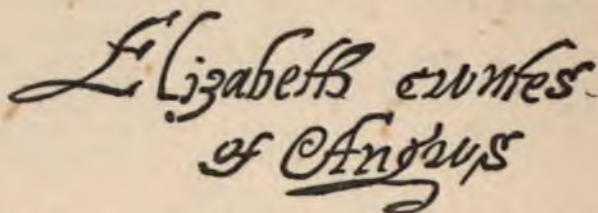 Elizabeth cwntes
of Angws